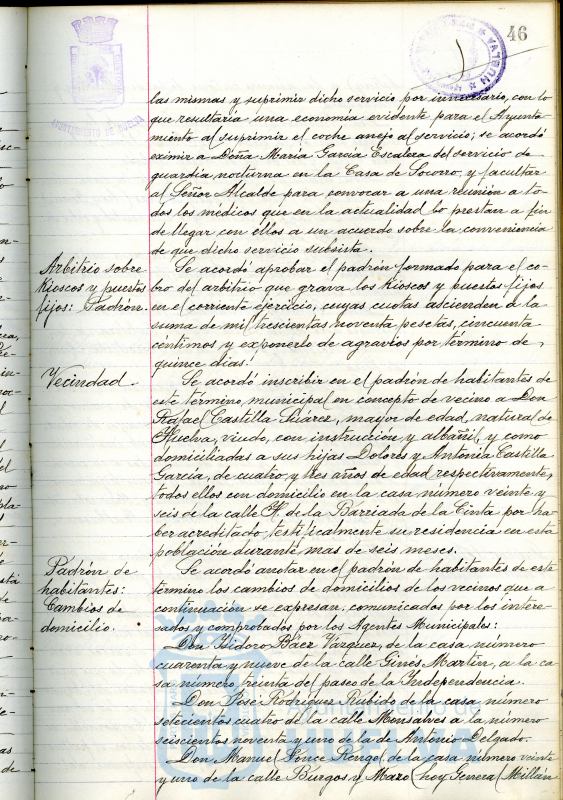 46
AYUNTAMIENTO DE HUELVA
las mismas y suprimir dicho servicio por innecesario, con lo
que resultaría una economía evidente para el Ayunta-
miento al suprimir el coche anejo al servicio; se acordó
eximir a Doña María García Escalera del servicio de
guardia nocturna en la Casa de Socorro, y facultar
al Señor Alcalde para convocar a una reunión a to-
dos los médicos que en la actualidad lo prestan a fin
de llegar con ellos a un acuerdo sobre la conveniencia
de que dicho servicio subsista.
Arbitrio sobre
kioscos y puestos
fijos: Padrón.
Se acordó aprobar el padrón formado para el co-
bro del arbitrio que grava los kioscos y puestos fijos
en el corriente ejercicio, cuyas cuotas ascienden a la
suma de mil trescientas noventa pesetas, cincuenta
céntimos y exponerlo de agravios por término de
quince días.
Vecindad.
Se acordó inscribir en el padrón de habitantes de
este término municipal en concepto de vecino a Don
Rafael Castilla Suárez, mayor de edad, natural de
Huelva, viudo, con instrucción y albañil, y como
domiciliadas a sus hijas Dolores y Antonia Castilla
García, de cuatro y tres años de edad respectivamente,
todos ellos con domicilio en la casa número veinte y
seis de la calle F. de la Barriada de la Cinta por ha-
ber acreditado testificalmente su residencia en esta
población durante mas de seis meses.
Padrón de
habitantes:
Cambios de
domicilio.
Se acordó anotar en el padrón de habitantes de este
término los cambios de domicilios de los vecinos que a
continuación se expresan, comunicados por los intere-
sados y comprobados por los Agentes Municipales:
Don Isidoro Báez Vázquez, de la casa número
cuarenta y nueve de la calle Ginés Martín, a la ca-
sa número treinta del paseo de la Independencia.
Don José Rodríguez Rubido de la casa número
setecientos cuatro de la calle Monsalves a la número
seiscientos noventa y uno de la de Antonio Delgado.
Don Manuel Ponce Rengel de la casa número veinte
y uno de la calle Burgos y Mazo (hoy General Millán
Ayuntamiento de
HUELVA